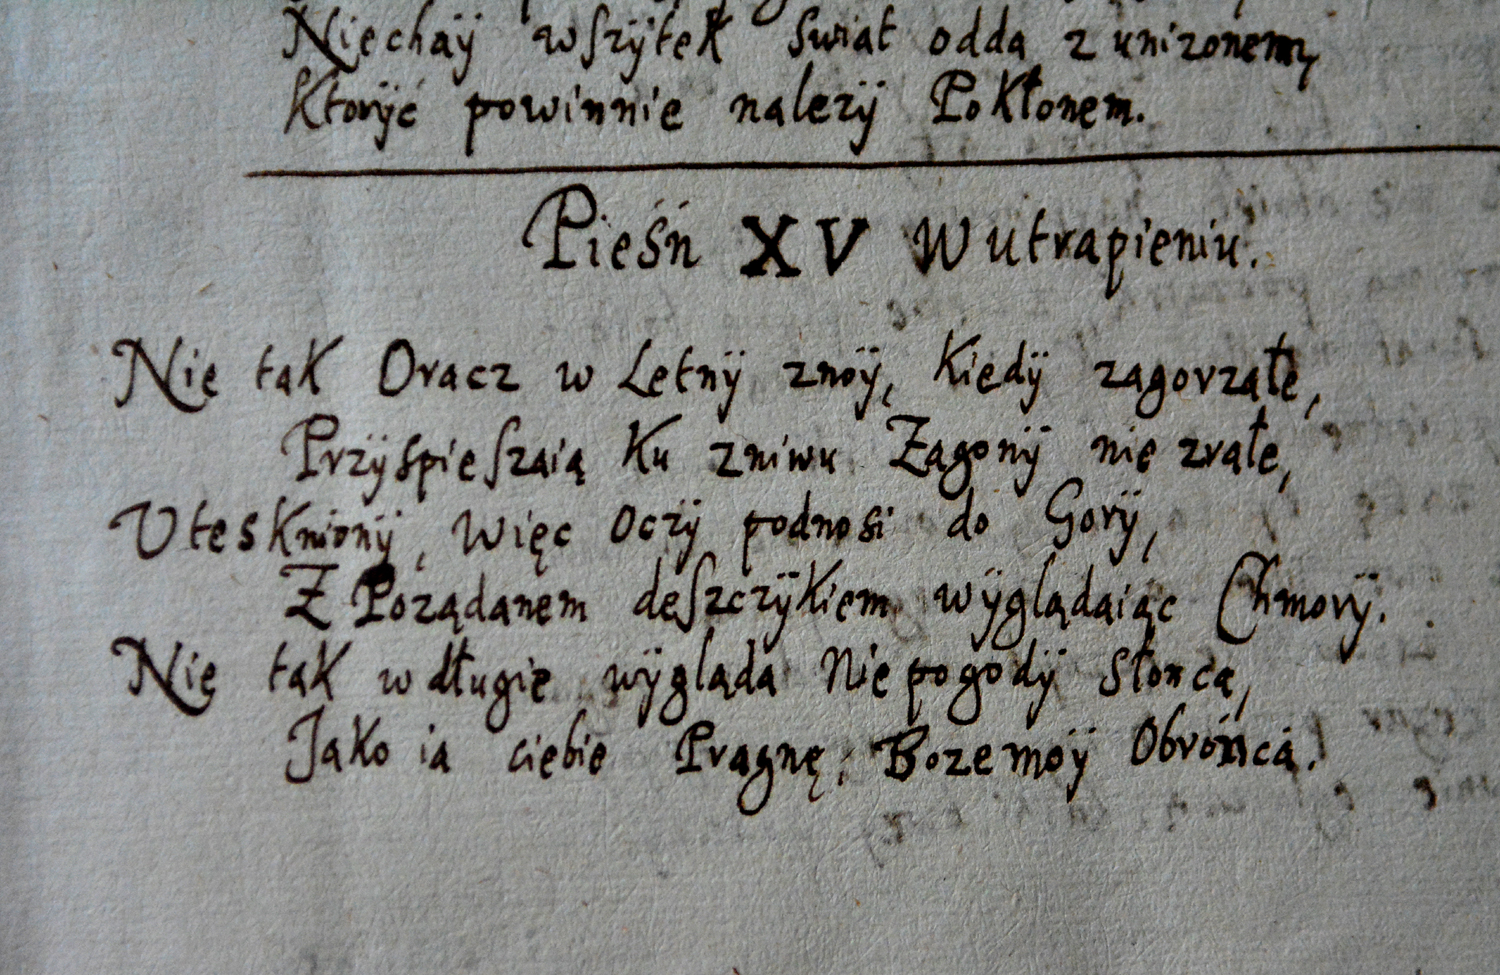 Niechaÿ wszÿtek świat odda z unizonem,
Ktorÿć powinnie nalezÿ Pokłonem.
Pieśń XV W utrapieniu.
Nie tak Oracz w Letnÿ znoÿ, kiedÿ zagorzałe,
Przÿspieszaią ku zniwu Zagonÿ nie zrałe,
Utesknionÿ, Więc Oczÿ podnosi do Gorÿ,
Z Poządanem deszczÿkiem wÿglądaiąc Chmorÿ.
Nie tak w długie wÿgląda Niepogodÿ słońca,
Jako ia ciebie Pragnę, Boze moÿ Obrońca.